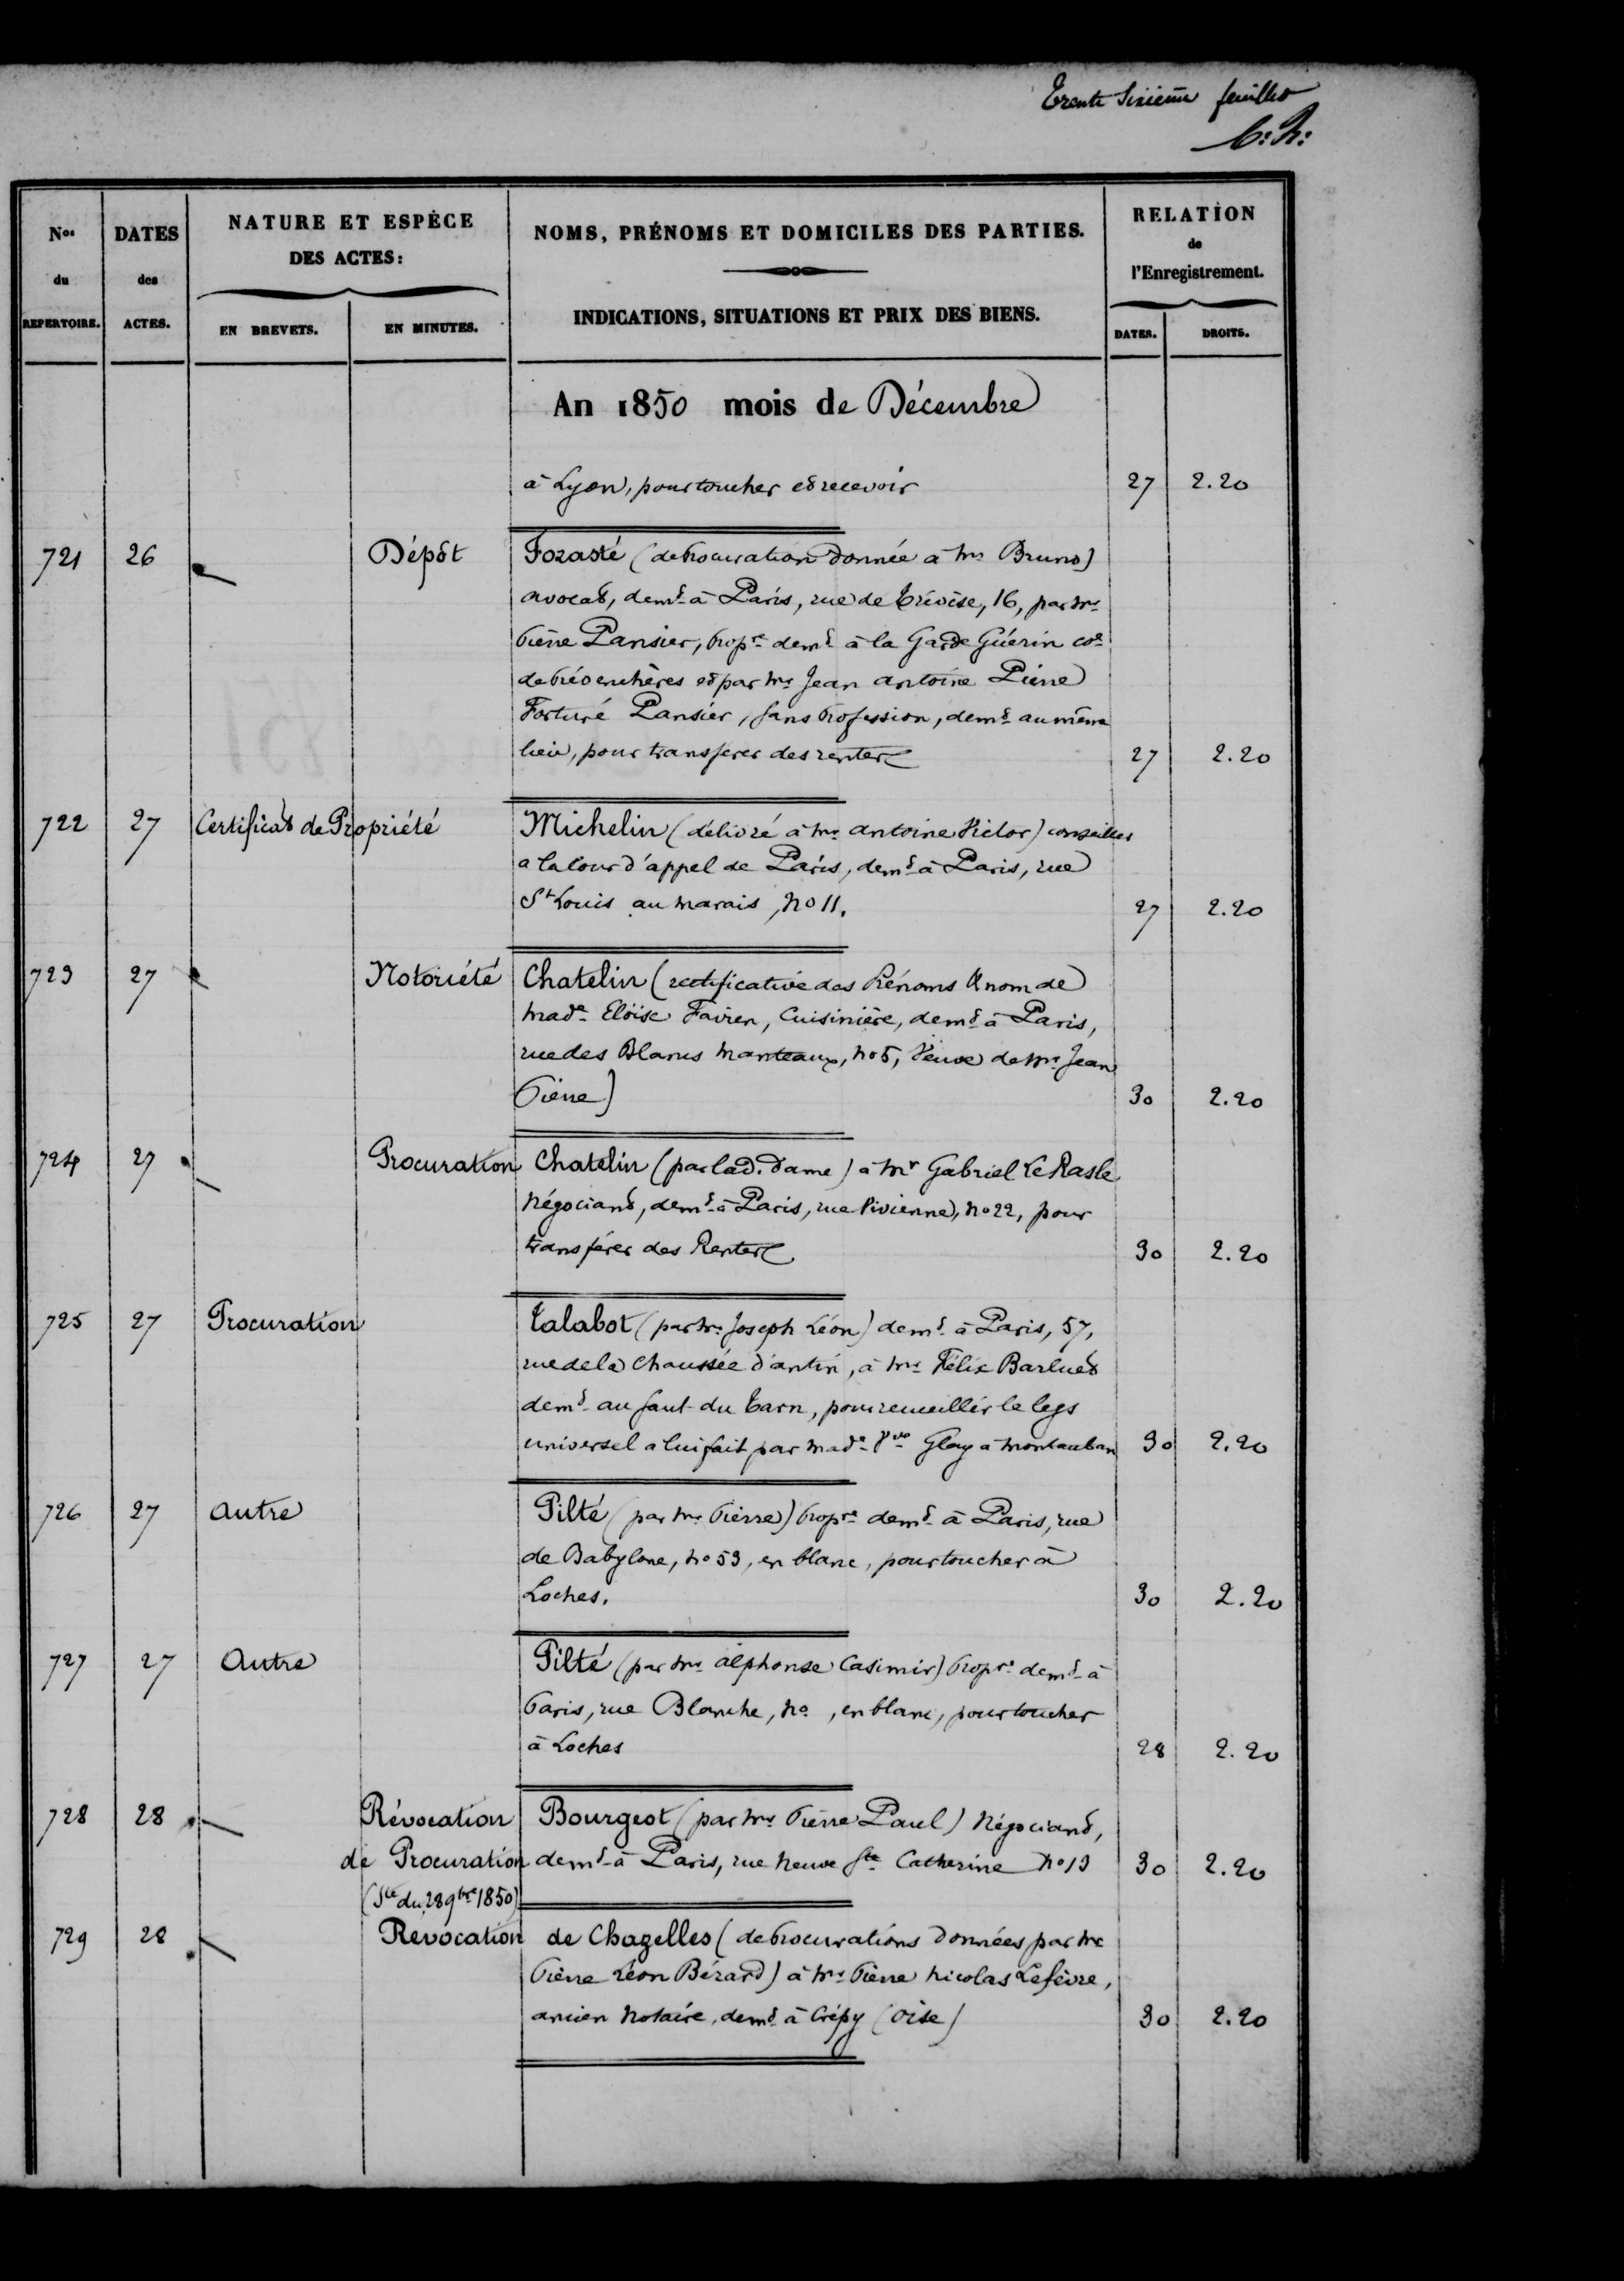 Trente Sixième feuillet
C: N:
Nos du REPERTOIRE.
DATES des ACTES.
NATURE ET ESPÈCE DES ACTES:
EN BREVETS.
EN MINUTES.
NOMS, PRÉNOMS ET DOMICILES DES PARTIES.
INDICATIONS, SITUATIONS ET PRIX DES BIENS.
RELATION de l'Enregistrement.
DATES.
DROITS.
An 1850 mois de Décembre
à Lyon, pour toucher et recevoir 27 2.20
721 26 Dépôt Forasté (de Procuration donnée à Mr Bruno)
avocat, demt à Paris, rue de Trévise, 16, par Mr
Pierre Pansier, Propre demt à la Garde Guérin cne
de Prévenchères et par Mr Jean antoine Pierre
Fortuné Pansier, sans Profession, demt au même
lieu, pour transférer des rentes 27 2.20
722 27 Certificat de Propriété Michelin (délivré à Mr antoine Victor) conseiller
a la Cour d'appel de Paris, demt à Paris, rue
St Louis au marais, No 11. 27 2.20
723 27 Notoriété Chatelin (rectificative des Prénoms & nom de
Made Eloïse Favien, Cuisinière, demt à Paris,
rue des Blancs Manteaux, No 5, Veuve de Mr Jean
Pierre) 30 2.20
724 27 Procuration Chatelin (par lad. dame) à Mr Gabriel Le Rasle
Négociant, demt à Paris, rue Vivienne, No 22, pour
transférer des Rentes 30 2.20
725 27 Procuration Talabot (par Mr Joseph Léon) demt à Paris, 57,
rue de la Chaussée d'antin, à Mr Félix
demt au Saut du Tarn, pour recueillir le legs
universel a lui fait par Made Vve à Montauban 30 2.20
726 27 autre Pilté (par Mr Pierre) Propre demt à Paris, rue
de Babylone, No 53, en blanc, pour toucher à
Loches. 30 2.20
727 27 Autre Pilté (par Mr alphonse Casimir) Propre demt à
Paris, rue Blanche, No , en blanc, pour toucher
à Loches 28 2.20
728 28 Révocation Bourgeot (par Mr Pierre Paul) Négociant,
de Procuration demt à Paris, rue Neuve Ste Catherine No 13 30 2.20
(Ste du 28 9bre 1850)
729 28 Revocation de Chazelles (de Procurations données par Mr
Pierre Léon Bérard) à Mr Pierre Nicolas Lefèvre,
ancien Notaire, demt à Crépy (Oise) 30 2.20